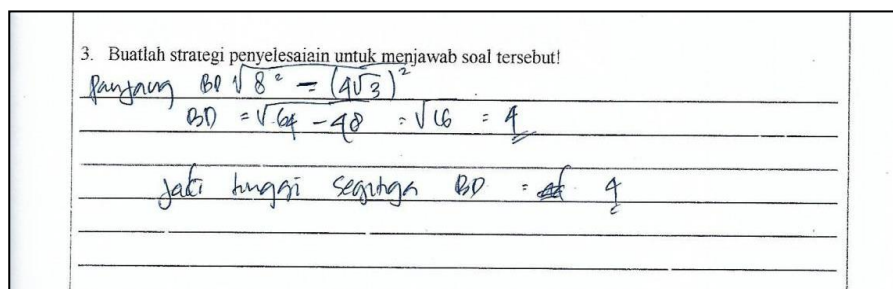 3. Buatlah strategi penyelesaiain untuk menjawab soal tersebut!
Panjang BD √8² - (4√3)²
BD = √64 - 48 = √16 = 4
Jadi tinggi segitiga BD = 4